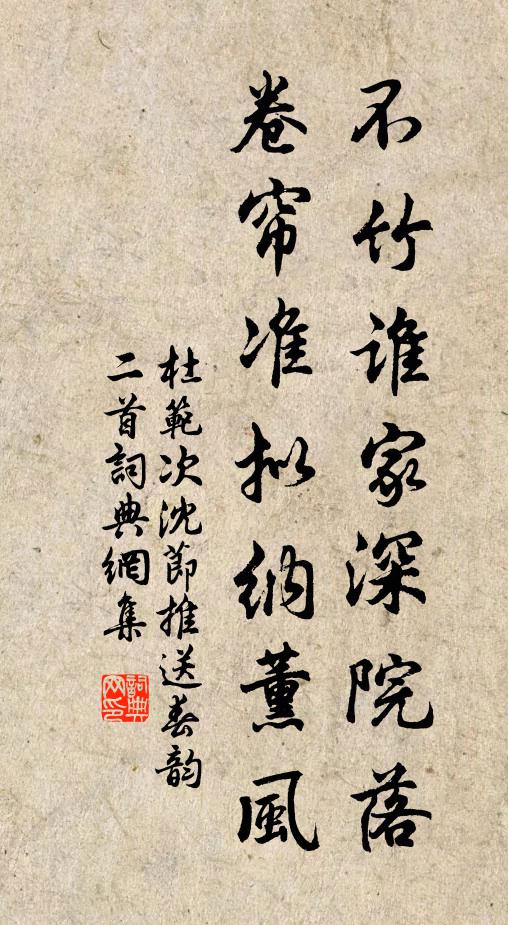 不竹谁家深院落
卷帘准拟纳薰風
杜範次沈節推送春韵
二首詞典網集
詞典
网印